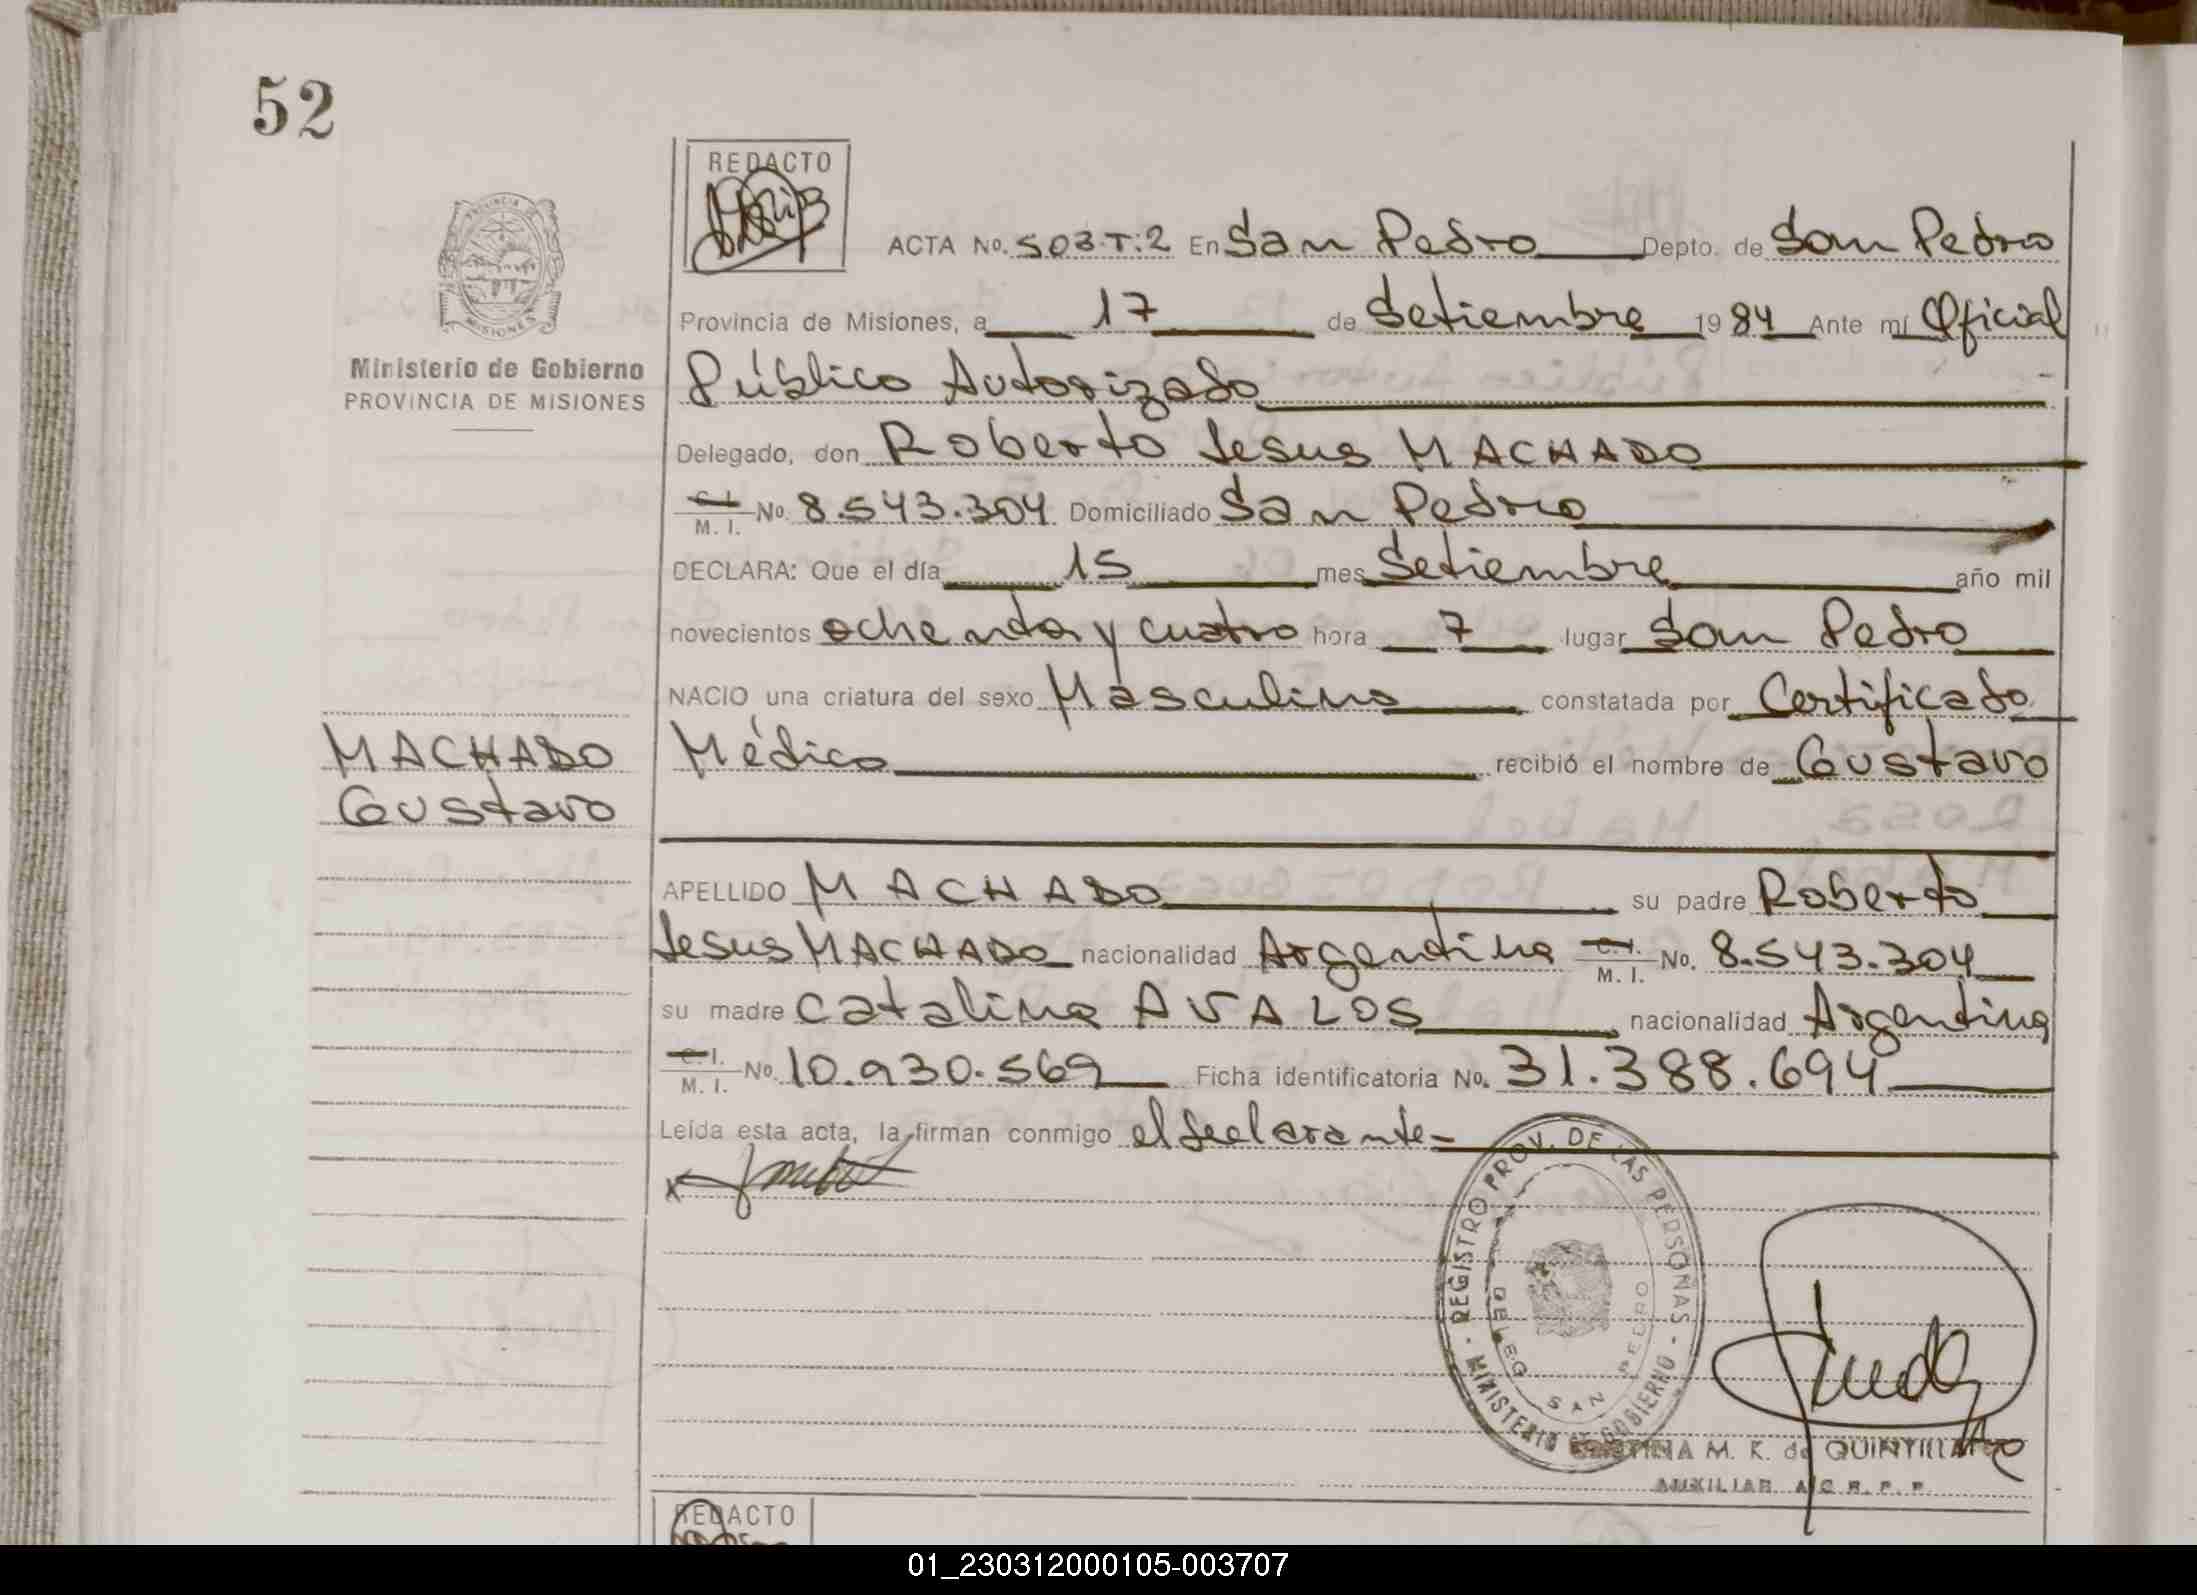 52
REDACTO
ACTA No. 503.T:2 En San Pedro Depto. de San Pedro
Provincia de Misiones, a 17 de Setiembre 1984 Ante mí Oficial
Ministerio de Gobierno
PROVINCIA DE MISIONES
Público Autorizado
Delegado, don Roberto Jesus MACHADO
C. I. M. I. No. 8.543.304 Domiciliado San Pedro
DECLARA: Que el día 15 mes Setiembre año mil
novecientos ochenta y cuatro hora 7 lugar San Pedro
NACIO una criatura del sexo Masculino constatada por Certificado
MACHADO
Gustavo
Médico recibió el nombre de Gustavo
APELLIDO MACHADO su padre Roberto
Jesus MACHADO nacionalidad Argentina C. I. M. I. No. 8.543.304
su madre Catalina AVALOS nacionalidad Argentina
C. I. M. I. No. 10.930.569 Ficha identificatoria No. 31.388.694
Leída esta acta, la firman conmigo el declarante
x
REGISTRO PROV. DE LAS PERSONAS - MINISTERIO DE GOBIERNO -
DELEG. SAN PEDRO
M. K. de
AUXILIAR
REDACTO
01_230312000105-003707